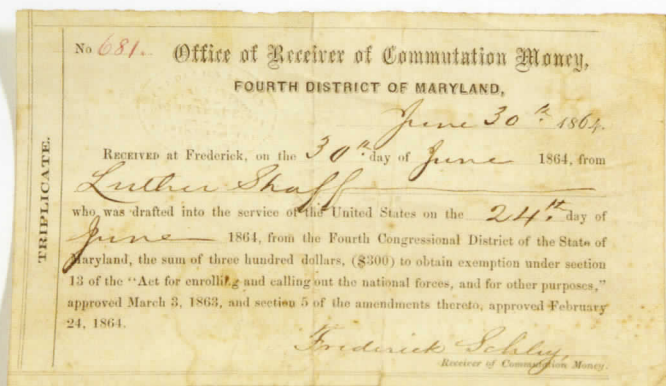 No 681.
Office of Receiver of Commutation Money,
FOURTH DISTRICT OF MARYLAND,
June 30th. 1864.
TRIPLICATE.
RECEIVED at Frederick, on the 30th day of June 1864, from
Luther Shaff
who was drafted into the service of the United States on the 24th. day of
June 1864, from the Fourth Congressional District of the State of
Maryland, the sum of three hundred dollars, ($300) to obtain exemption under section
13 of the "Act for enrolling and calling out the national forces, and for other purposes,"
approved March 3, 1863, and section 5 of the amendments thereto, approved February
24, 1864.
Frederick Schley,
Receiver of Commutation Money.